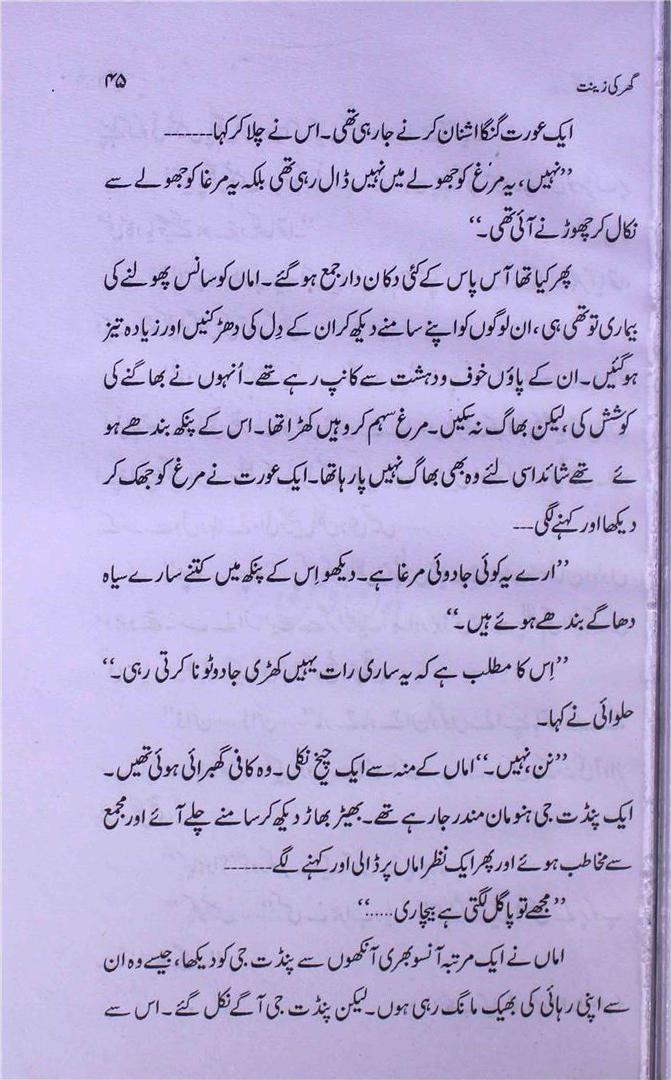 گھر کی زینت ۴۵
ایک عورت گنگا اشنان کرنے جا رہی تھی۔ اس نے چلا کر کہا۔۔۔۔۔۔۔
’’نہیں، یہ مرغ کو جھولے میں نہیں ڈال رہی تھی بلکہ یہ مرغا کو جھولے سے
نکال کر چھوڑنے آئی تھی۔‘‘
پھر کیا تھا آس پاس کے کئی دکان دار جمع ہو گئے۔ اماں کو سانس پھولنے کی
بیماری تو تھی ہی، ان لوگوں کو اپنے سامنے دیکھ کر ان کے دِل کی دھڑکنیں اور زیادہ تیز
ہو گئیں۔ ان کے پاؤں خوف و دہشت سے کانپ رہے تھے۔ اُنہوں نے بھاگنے کی
کوشش کی، لیکن بھاگ نہ سکیں۔ مرغ سہم کر وہیں کھڑا تھا۔ اس کے پنکھ بندھے ہو
ئے تھے شائد اسی لئے وہ بھی بھاگ نہیں پا رہا تھا۔ ایک عورت نے مرغ کو جھک کر
دیکھا اور کہنے لگی۔۔۔
’’ارے یہ کوئی جادوئی مرغا ہے۔ دیکھو اِس کے پنکھ میں کتنے سارے سیاہ
دھاگے بندھے ہوئے ہیں۔‘‘
’’اِس کا مطلب ہے کہ یہ ساری رات یہیں کھڑی جادو ٹونا کرتی رہی۔‘‘
حلوائی نے کہا۔
’’نن نہیں۔‘‘ اماں کے منہ سے ایک چیخ نکلی۔ وہ کافی گھبرائی ہوئی تھیں۔
ایک پنڈت جی ہنومان مندر جا رہے تھے۔ بھیڑ بھاڑ دیکھ کر سامنے چلے آئے اور مجمع
سے مخاطب ہوئے اور پھر ایک نظر اماں پر ڈالی اور کہنے لگے۔۔۔۔۔۔۔
’’مجھے تو پاگل لگتی ہے بیچاری.....‘‘
اماں نے ایک مرتبہ آنسو بھری آنکھوں سے پنڈت جی کو دیکھا، جیسے وہ ان
سے اپنی رہائی کی بھیک مانگ رہی ہوں۔ لیکن پنڈت جی آگے نکل گئے۔ اس سے